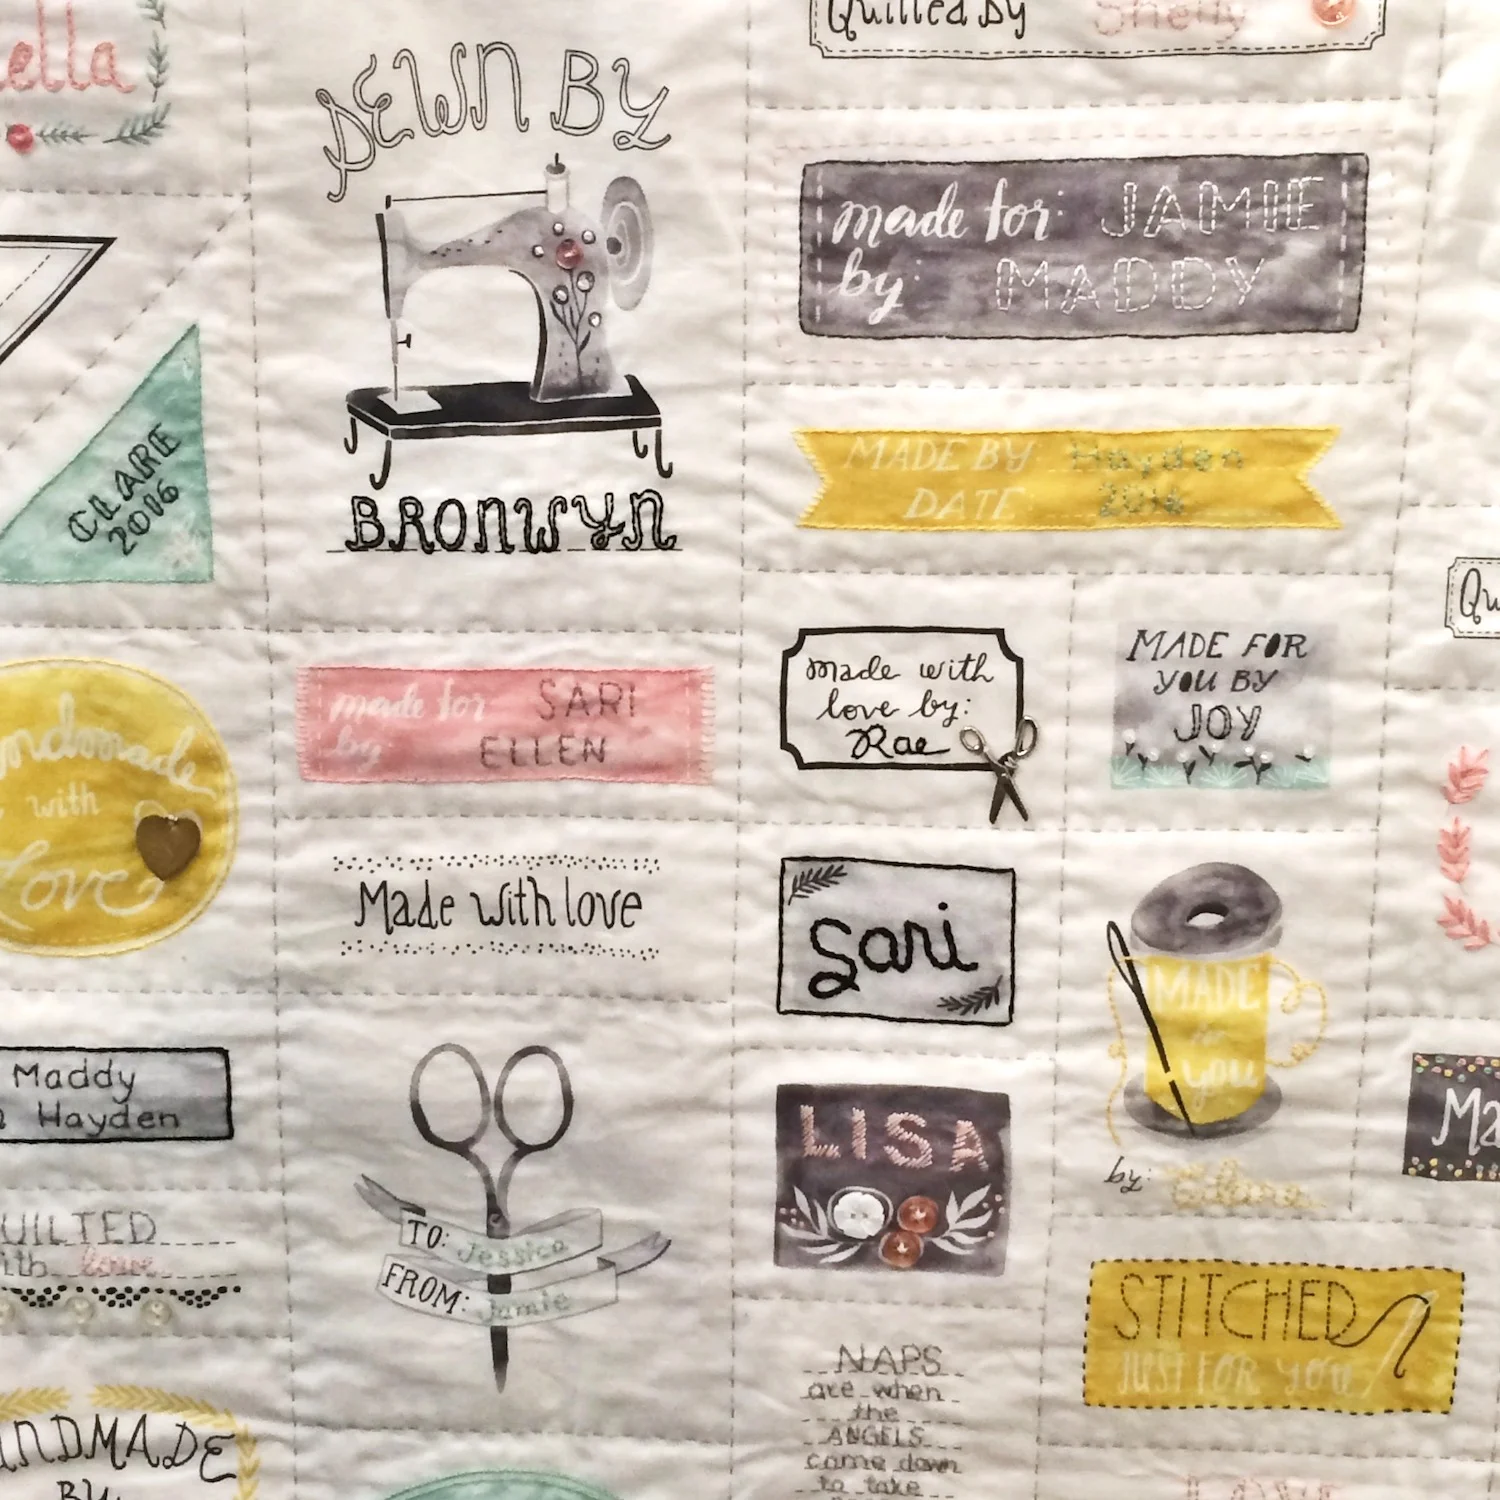 ella
SEWN BY
BRONWYN
Quilted By Shelly
made for: JAMIE
by: MADDY
CLARE
2016
MADE BY Hayden
DATE 2016
made for SARI
by ELLEN
made with
love by:
Rae
MADE FOR
YOU BY
JOY
Qu
ndmade
with
Love
Made with love
Sari
MADE
you
by:
Maddy
Hayden
LISA
Ma
UILTED
ith love
TO: Jessica
FROM: Jamie
STITCHED
JUST FOR YOU
NAPS
are when
the
ANGELS
come down
to take
ANDMADE
BY